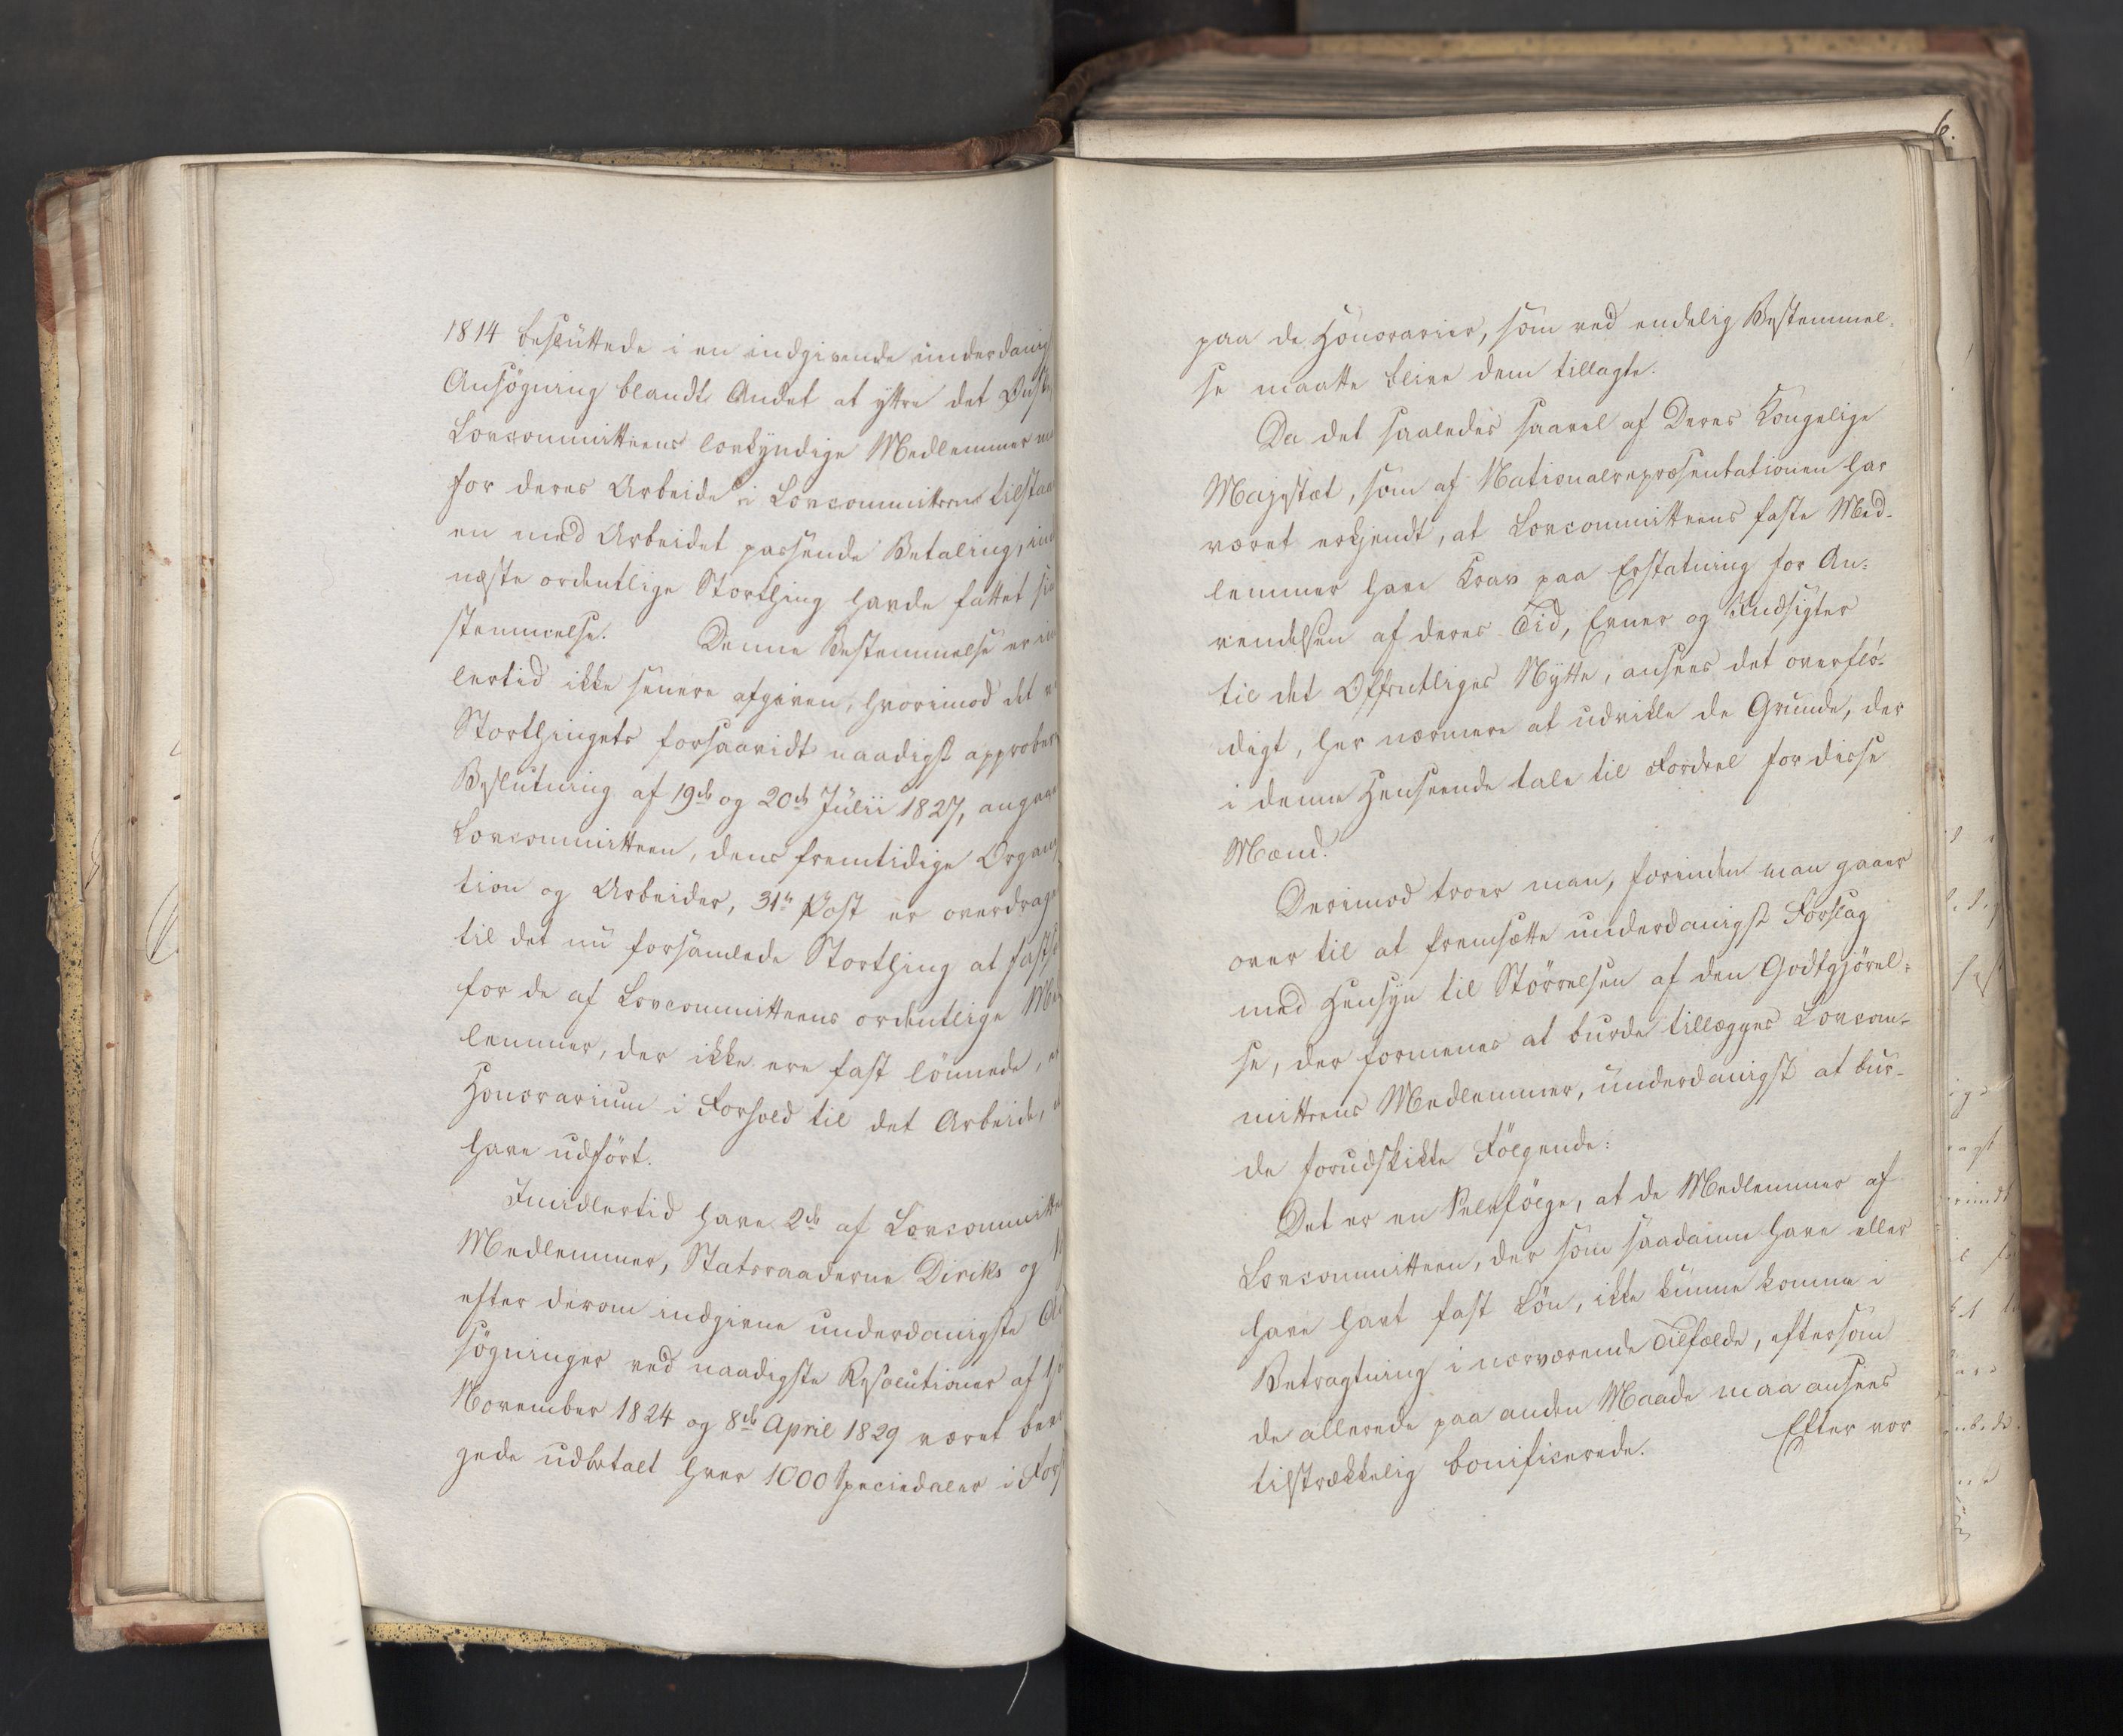 1814 besluttede i en indgivende underdanig
Ansögning blandt Andet at yttre det Ønsk
Lovcommitteens lovkyndige Medlemmer m
for deres Arbeide i Lovcommitteen tilstaa
en med Arbeidet passende Betaling, in
næste ordentlige Storthing havde fattet si
stemmelse. Denne Bestemmelse er im
lertid ikke senere afgiven, hvorimod det v
Storthingets forsaavidt naadigst approber
Beslutning af 19de og 20de Julii 1827, angaa
Lovcommitteen, dens fremtidige Organi
tion og Arbeider, 31te Post er overdrag
til det nu forsamlede Storthing at fasts
for de af Lovcommitteens ordentlige Med
lemmer, der ikke ere fast lönnede, et
Honorarium i Forhold til det Arbeide,
have udfört.
Imidlertid have 2de af Lovcommitte
Medlemmer, Statsraaderne Diriks og
efter derom indgivne underdanigste An
sögninger ved naadigste Resolutioner af
November 1824 og 8de April 1829 været bevi
gede udbetalt hver 1000 Speciedaler i Fors
6.
paa de Honorarier, som ved endelig Bestemmel-
se maatte blive dem tillagte.
Da det saaledes saavel af Deres Kongelige
Majestæt, som af Nationalrepræsentationen har
været erkjendt, at Lovcommitteens faste Med-
lemmer have Krav paa Erstatning for An-
vendelsen af deres Tid, Evner og Indsigter
til det Offentliges Nytte, ansees det overflö-
digt, her nærmere at udvikle de Grunde, der
i denne Henseende tale til Fordeel for disse
Mænd.
Derimod troer man, forinden man gaaer
over til at fremsætte underdanigst Forslag
med Hensyn til Störrelsen af den Godtgjörel-
se, der formenes at burde tillægges Lovcom-
mitteens Medlemmer, underdanigst at bur-
de forudskikke Fölgende:
Det er en Selvfölge, at de Medlemmer af
Lovcommitteen, der som saadanne have eller
have havt fast Lön, ikke kunne komme i
Betragtning i nærværende Tilfælde, eftersom
de allerede paa anden Maade maa ansees
tilstrækkelig bonificerede. Efter vor